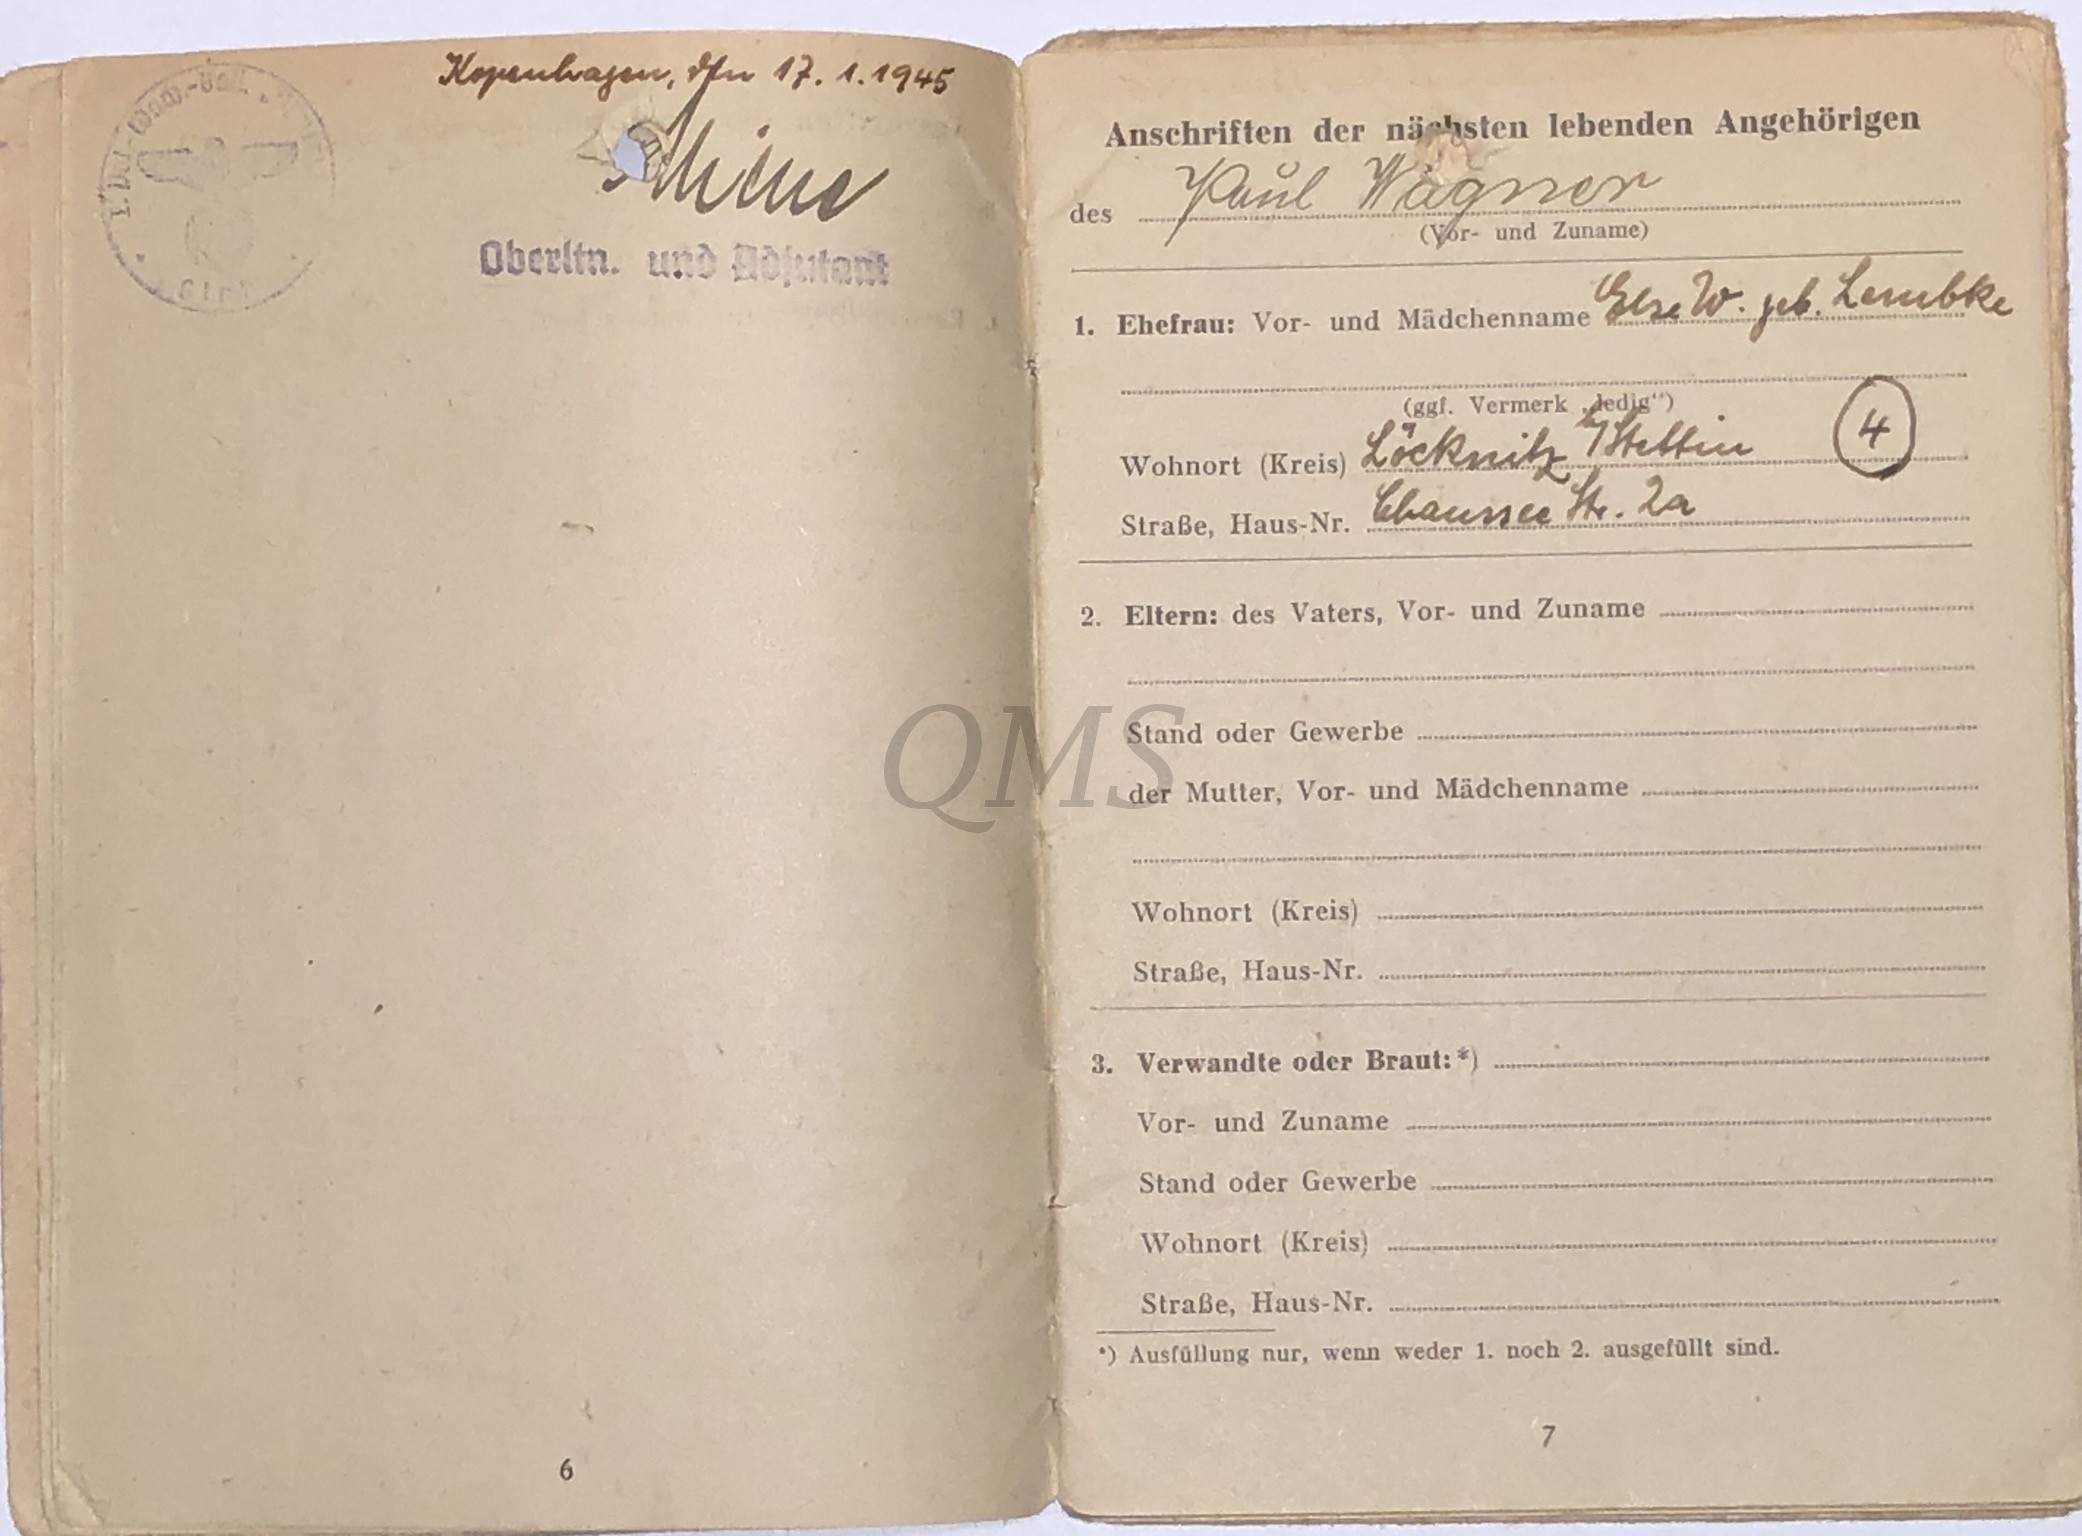 Kopenhagen, den 17.1.1945
Oberltn. und Adjutant
6
Anschriften der nächsten lebenden Angehörigen
des Paul Wagner
(Vor- und Zuname)
1. Ehefrau: Vor- und Mädchenname Else W. geb. Lembke
(ggf. Vermerk „ledig“)
Wohnort (Kreis) Löcknitz b/Stettin 4
Straße, Haus-Nr. Chaussee Str. 2a
2. Eltern: des Vaters, Vor- und Zuname
Stand oder Gewerbe
QMS
der Mutter, Vor- und Mädchenname
Wohnort (Kreis)
Straße, Haus-Nr.
3. Verwandte oder Braut:*)
Vor- und Zuname
Stand oder Gewerbe
Wohnort (Kreis)
Straße, Haus-Nr.
*) Ausfüllung nur, wenn weder 1. noch 2. ausgefüllt sind.
7